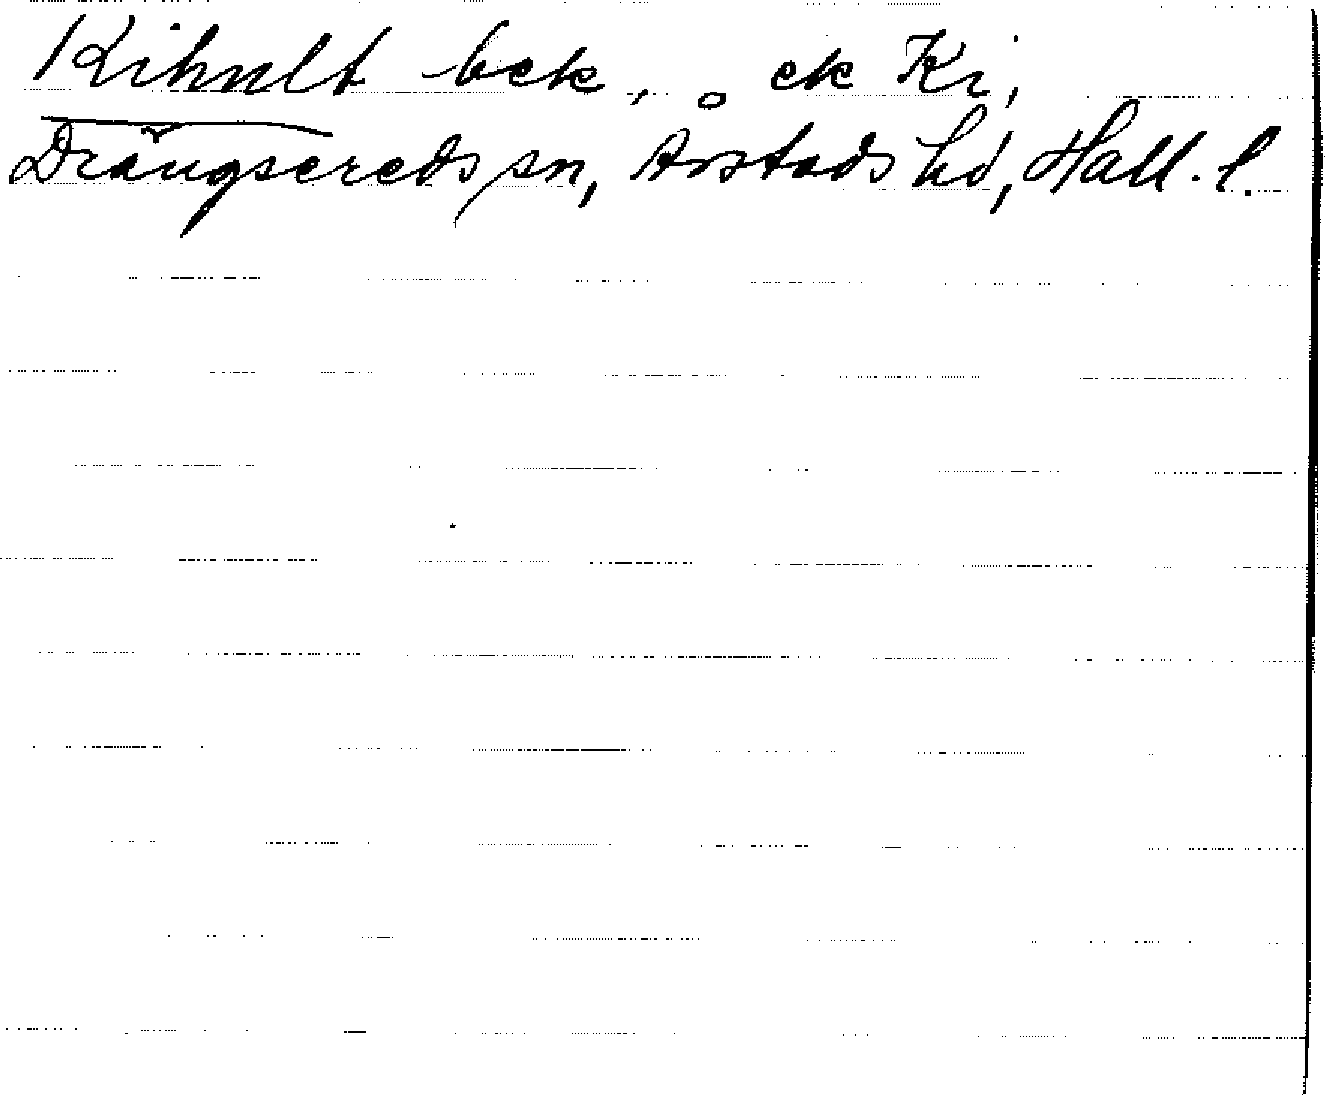 Kihult bek., o ek Ki,
Drängsereds sn, Årstads hd, Hall. l.